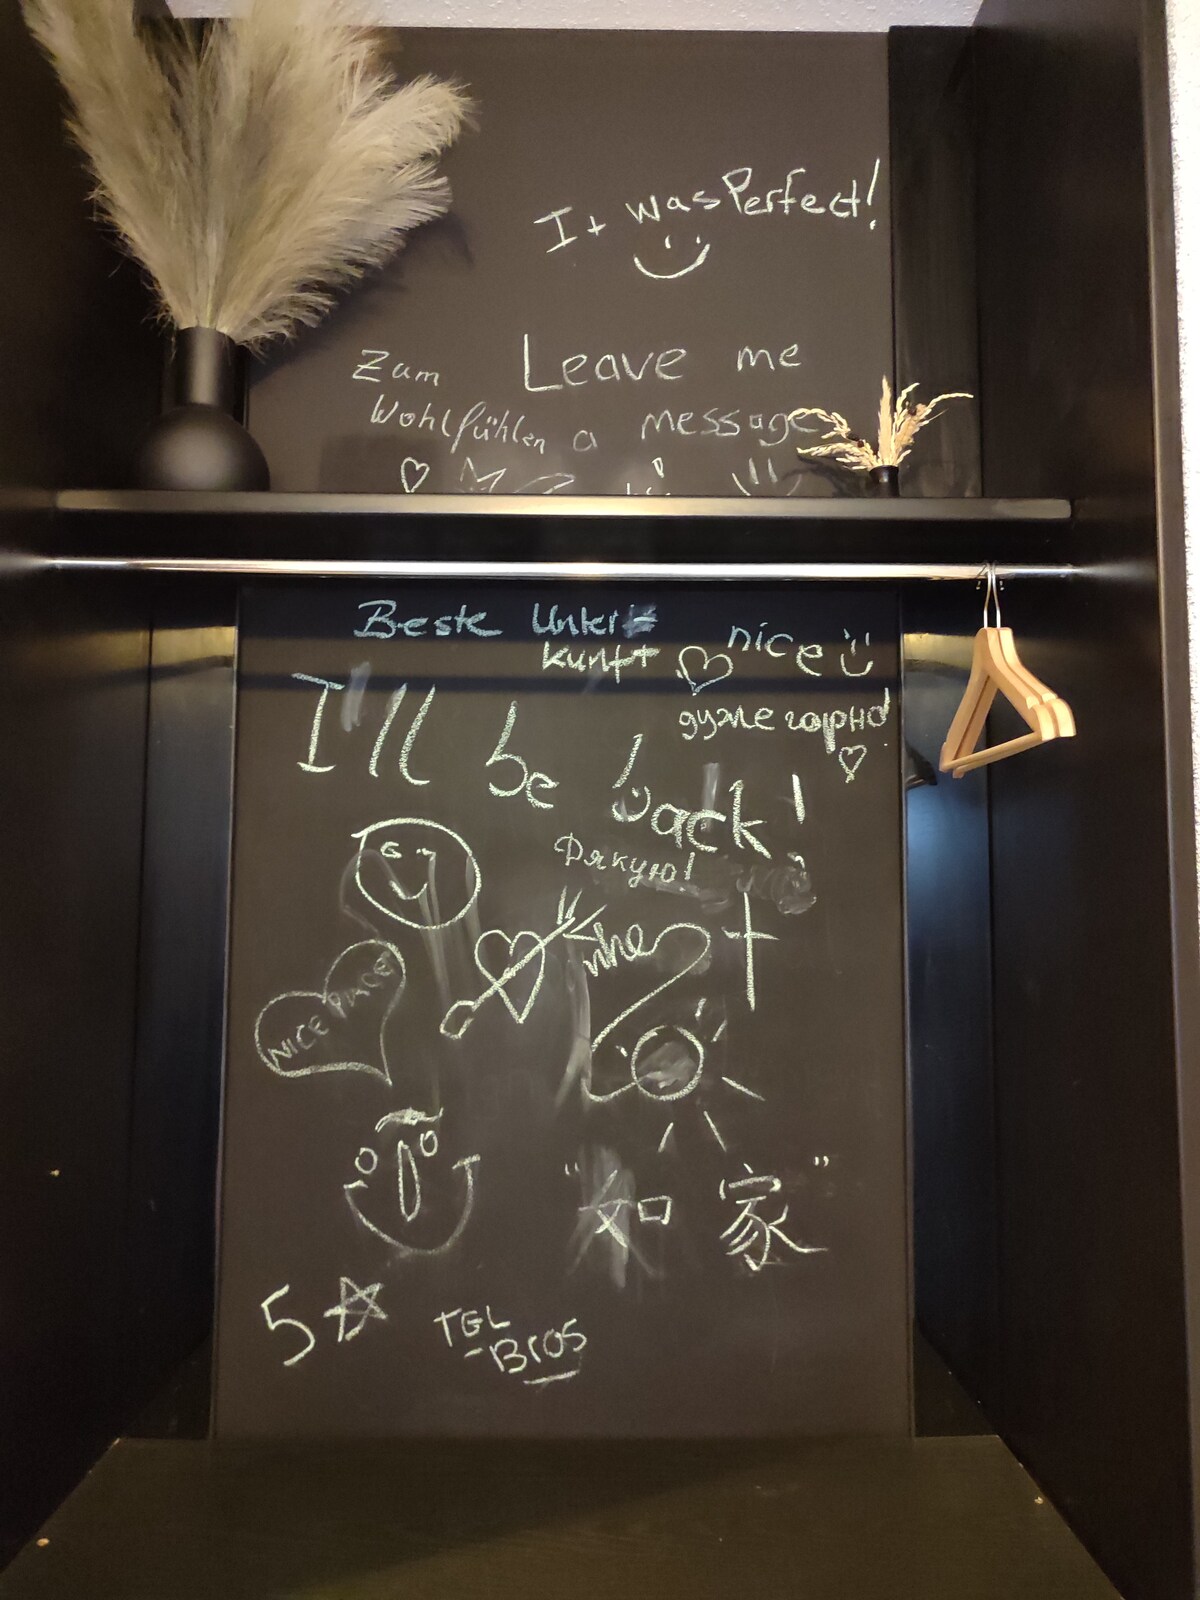 It was Perfect!
Zum
Wohlfühlen
Leave me
a message
Beste Unter=
kunft
nice
дуже гарно!
I'll be back!
Дякую!
NICE PLACE
"如家"
5
TGL
-Bros